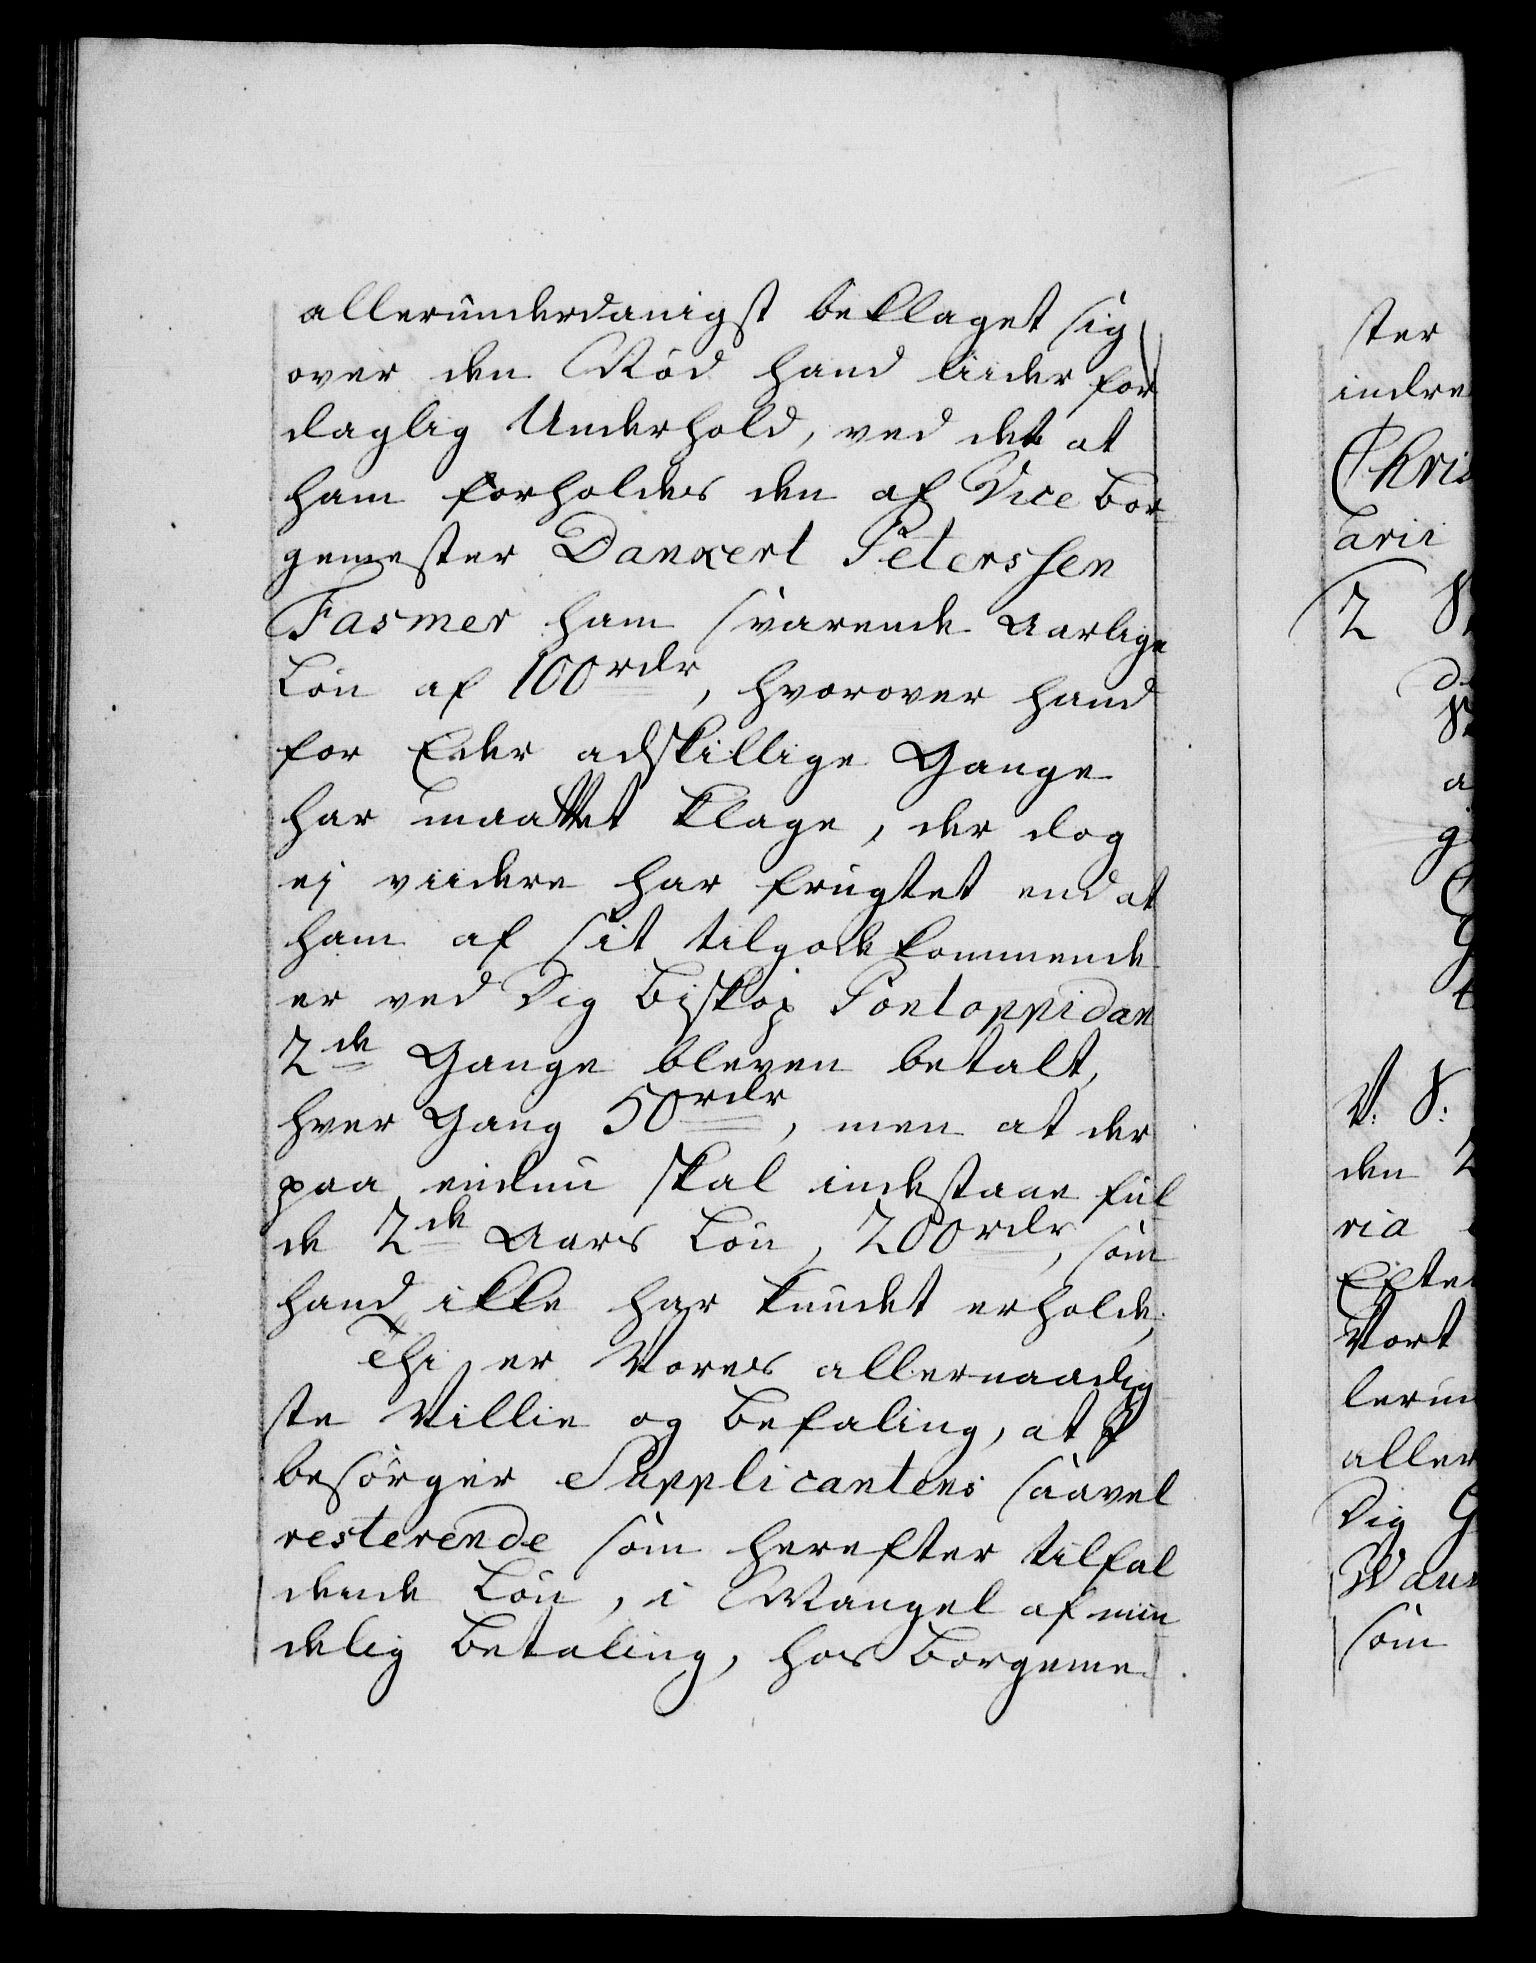 allerunderdanigst beklaget sig
over den Nød hand liider for
daglig Underhold, ved det at
ham forholdes den af Vice Bor
gemester Dankert Peterssen
Fasmer ham svarende Aarlige
Løn af 100 rdr, hvorover hand
for Eder adskillige Gange
har maattet klage, der dog
ej viidere har frugtet end at
ham af sit tilgodekommende
er ved Dig Biskop Pontoppidan
2de Gange bleven betalt,
hver Gang 50 rdr, men at der
paa endnu skal indestaae ful
de 2de Aars Løn, 200 rdr, som
hand ikke har kundet erholde,
Thi er Vores allernaadig
ste Villie og Befaling, at I
besørger Supplicantens saavel
resterende som herefter tilfal
dende Løn, i Mangel af min
delig Betaling, hos Borgeme
ster
indre
Chris
arii
2
den 2
ria
Efter
Vort
lerun
aller
Dig G
som